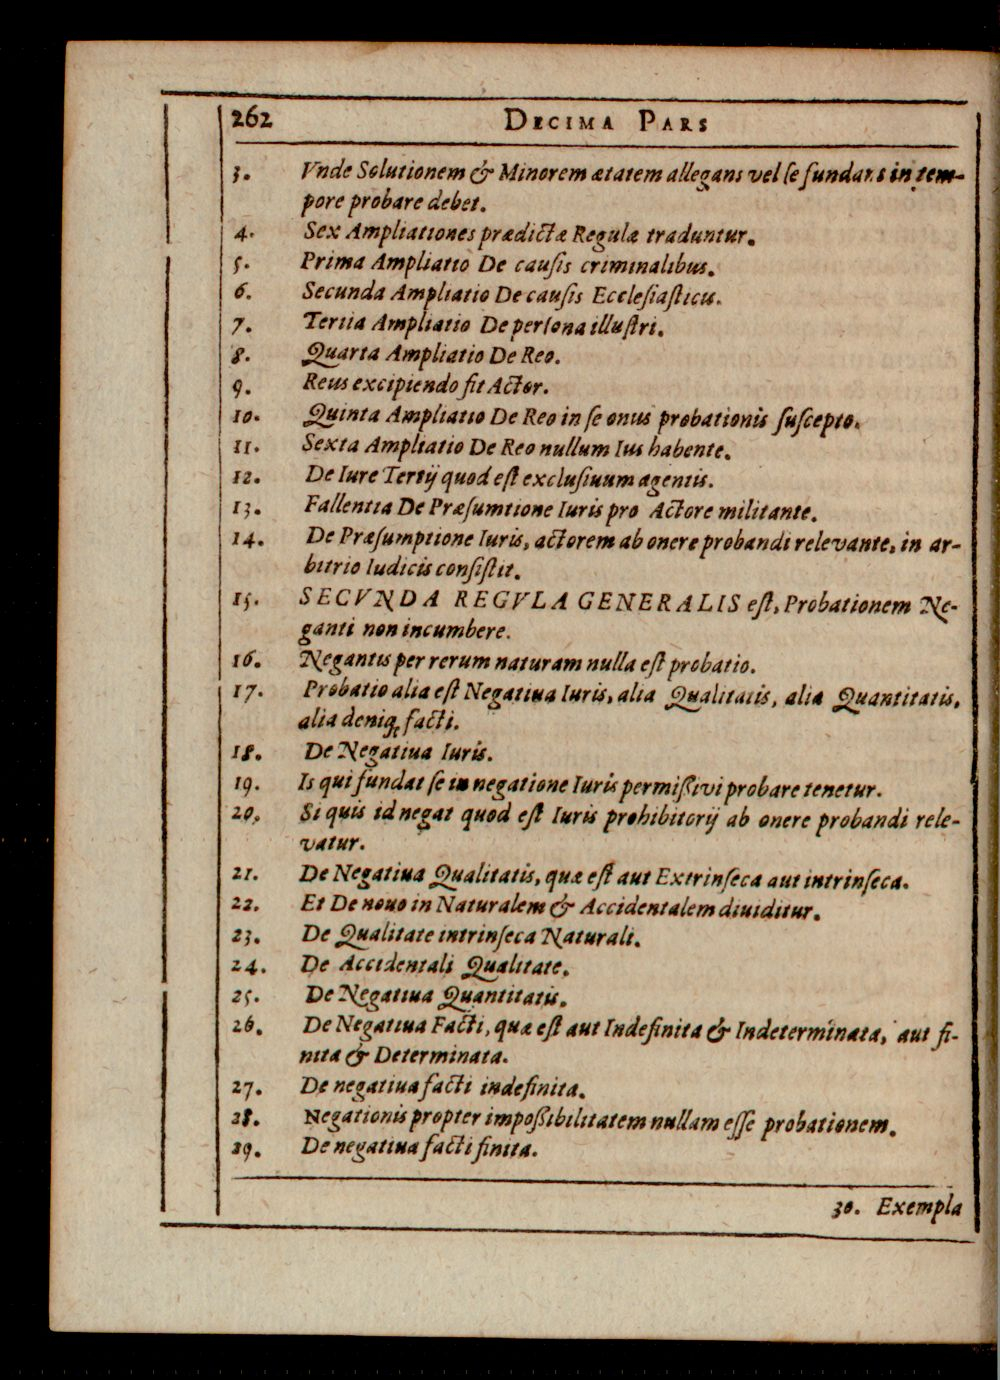 262 DECIMA PARS
3. Vnde Solutionem & Minorem ætatem allegans vel ſe fundans in tem-
pore probare debet.
4. Sex Ampliationes prædictæ Regulæ traduntur.
5. Prima Ampliatio De cauſis criminalibus.
6. Secunda Ampliatio De cauſis Eccleſiaſticis.
7. Tertia Ampliatio De perſona illuſtri.
8. Quarta Ampliatio De Reo.
9. Reus excipiendo fit Actor.
10. Quinta Ampliatio De Reo in ſe onus probationis ſuſcepto.
11. Sexta Ampliatio De Reo nullum Ius habente.
12. De Iure Tertij quod eſt excluſiuum agentis.
13. Fallentia De Præſumtione Iuris pro Actore militante.
14. De Præſumptione Iuris, actorem ab onere probandi relevante, in ar-
bitrio Iudicis conſiſtit.
15. SECVNDA REGVLA GENERALIS eſt, Probationem Ne-
ganti non incumbere.
16. Negantis per rerum naturam nulla eſt probatio.
17. Probatio alia eſt Negatiua Iuris, alia Qualitatis, alia Quantitatis,
alia deniq; facti.
18. De Negatiua Iuris.
19. Is qui fundat ſe in negatione Iuris permißivi probare tenetur.
20. Si quis id negat quod eſt Iuris prohibitorij ab onere probandi rele-
vatur.
21. De Negatiua Qualitatis, quæ eſt aut Extrinſeca aut intrinſeca.
22. Et De nouo in Naturalem & Accidentalem diuiditur.
23. De Qualitate intrinſeca Naturali.
24. De Accidentali Qualitate.
25. De Negatiua Quantitatis.
26. De Negatiua Facti, quæ eſt aut Indefinita & Indeterminata, aut fi-
nita & Determinata.
27. De negatiua facti indefinita.
28. Negationis propter impoßibilitatem nullam eſſe probationem.
29. De negatiua facti finita.
30. Exempla